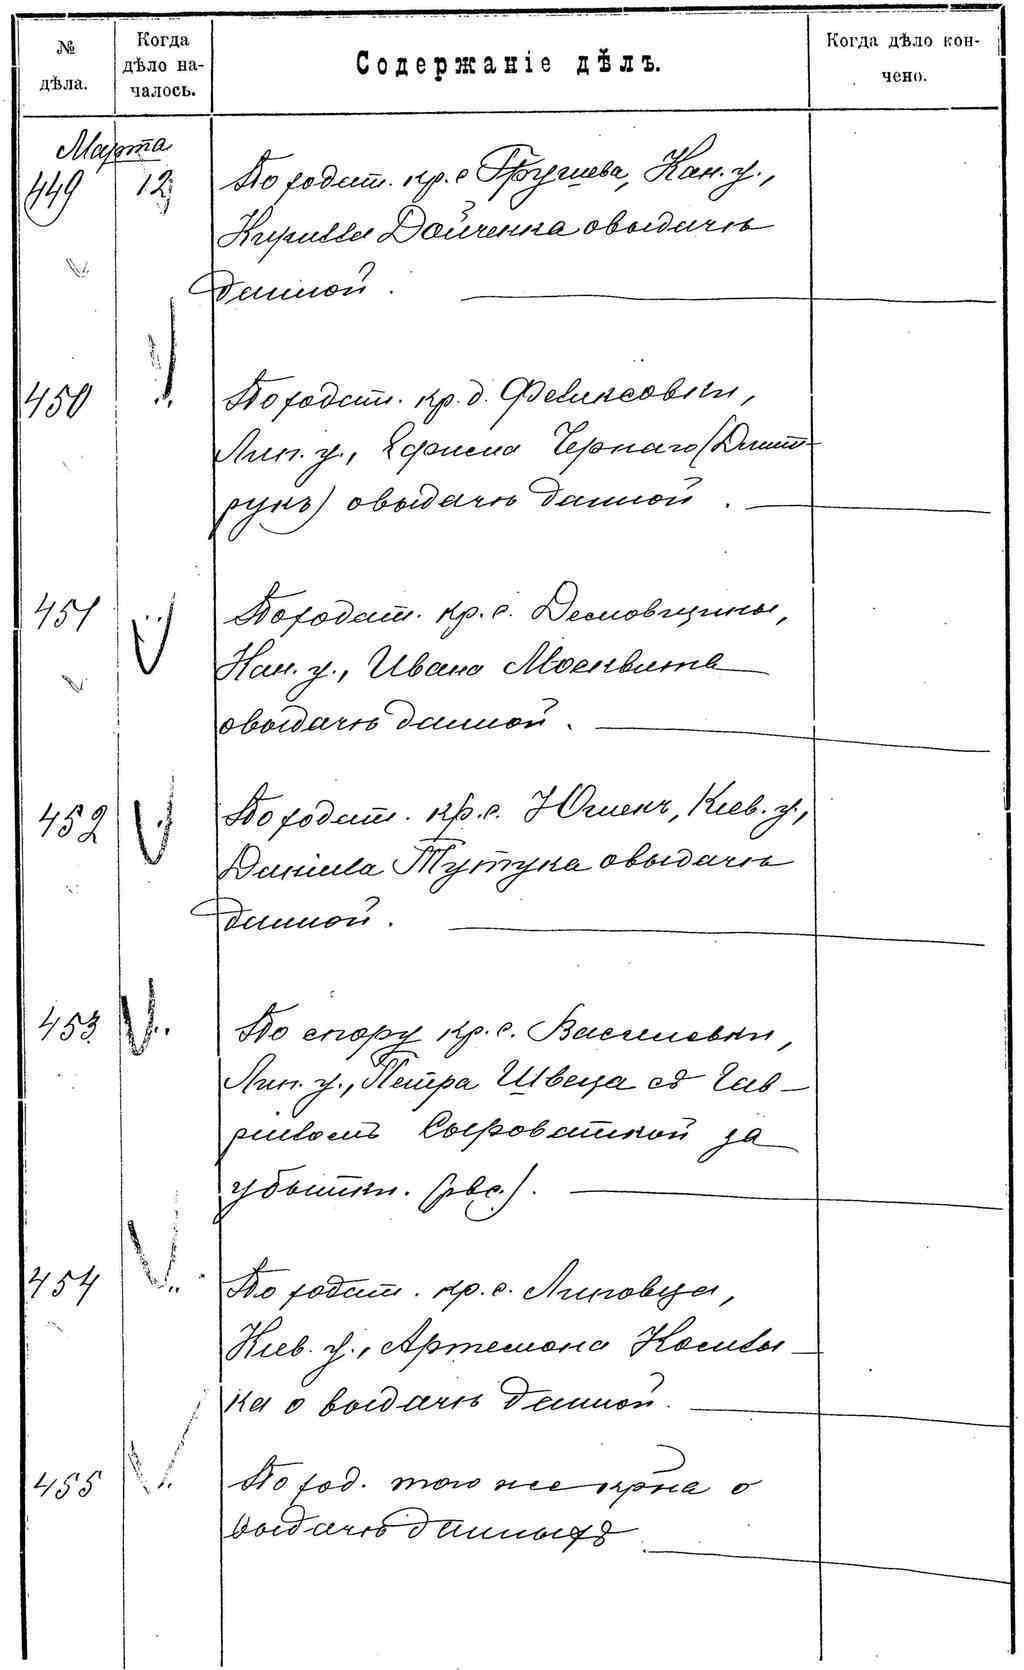 № дѣла.
Когда дѣло на-
чалось.
Содержаніе дѣлъ.
Когда дѣло кон-
чено.
Марта
449 12 По ходат. кр. с Грушева, Кан. у.,
Кирилла Дойченка о выдачѣ
данной.
450 По ходат. кр. д. Феликсовки,
Лип. у., Ефима Чернаго (Дмит-
рукъ) о выдачѣ данной.
451 По ходат. кр. с. Демовщины,
Кан. у., Ивана Москвина
о выдачѣ данной.
452 По ходат. кр. с. Юшекъ, Кіев. у.,
Даніила Тутука о выдачѣ
данной.
453 По спору кр. с. Василевки,
Лип. у., Петра Швеца съ Гав-
рииломъ Сыроваткой за
убытки.
454 По ходат. кр. с. Липовца,
Кіев. у., Артемона Комлы-
ка о выдачѣ данной.
455 По ход. того же кр-на о
выдачѣ данныхъ